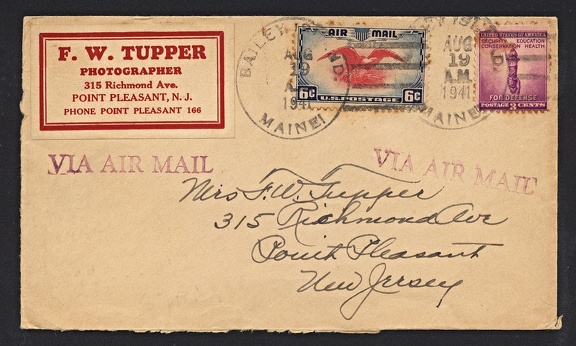 F. W. TUPPER
PHOTOGRAPHER
315 Richmond Ave.
POINT PLEASANT, N. J.
PHONE POINT PLEASANT 166
BAILEY
AUG
19
A.M.
1941
MAINE
AIR MAIL
6¢ U.S. POSTAGE 6¢
AUG
19
A.M.
1941
MAINE
UNITED STATES OF AMERICA
SECURITY EDUCATION
CONSERVATION HEALTH
FOR DEFENSE
POSTAGE 3 CENTS
VIA AIR MAIL
VIA AIR MAIL
Mrs F. W. Tupper
315 Richmond Ave
Point Pleasant
New Jersey